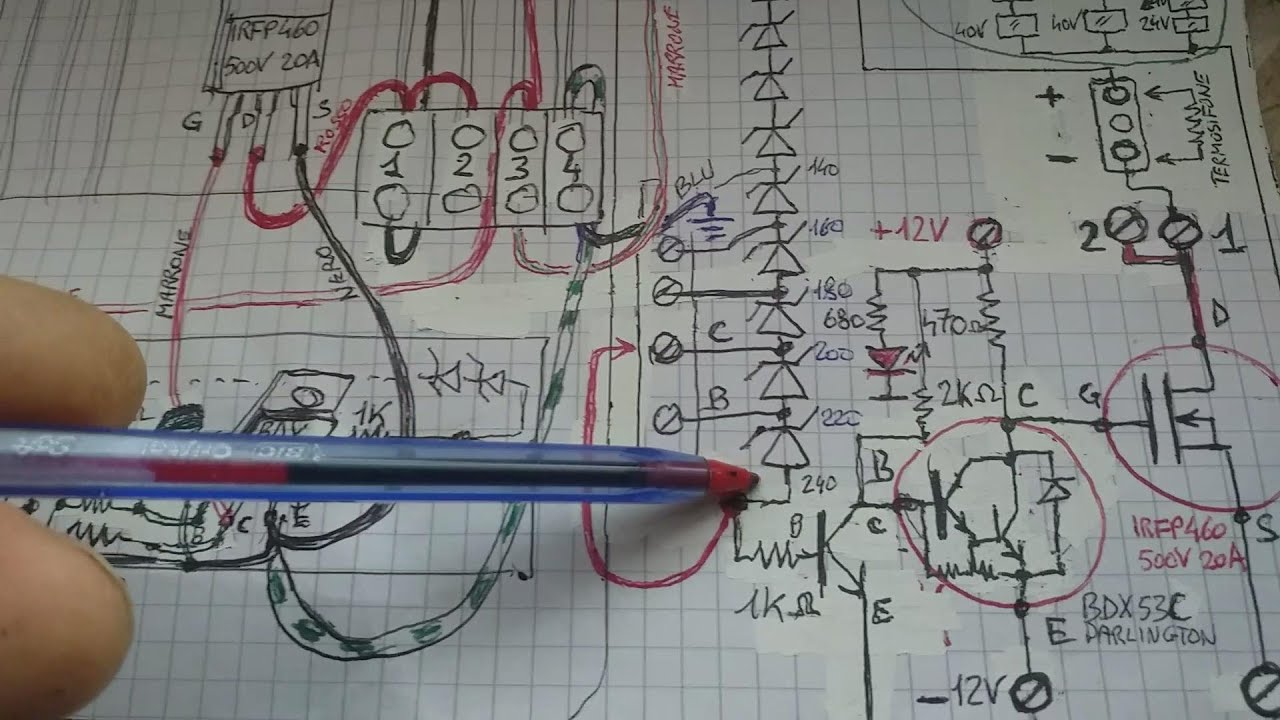 IRFP460
500V 20A
G
D
S
ROSSO
MARRONE
1
2
3
4
MARRONE
NERO
BLU
140
160
180
200
220
240
C
B
+12V
680
470Ω
2KΩ
C
G
D
S
40V
40V
24V
+
-
TERMOSIFONE
2
1
B
C
B
E
1KΩ
1K
C
E
IRFP460
500V 20A
BDX53C
DARLINGTON
E
-12V